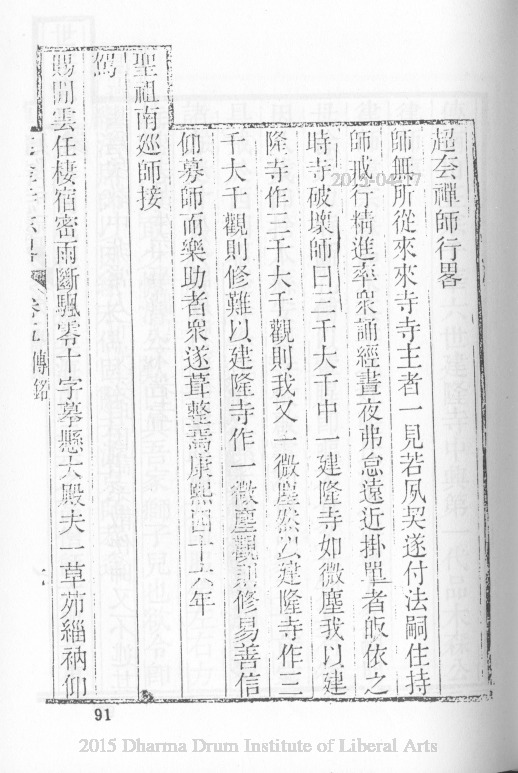 超厺禪師行畧
師無所從來來寺寺主者一見若夙契遂付法嗣住持
師戒行精進率衆誦經晝夜弗怠遠近掛單者皈依之
時寺破壞師曰三千大千中一建隆寺如微塵我以建
隆寺作三千大千觀則我又一微塵然以建隆寺作三
千大千觀則修難以建隆寺作一微塵觀則修易善信
仰募師而樂助者衆遂葺整焉康熙四十六年
聖祖南廵師接
駕
賜閒雲任棲宿密雨斷飄零十字摹懸大殿夫一草茆緇衲仰
卷五 傳銘
91
2015 Dharma Drum Institute of Liberal Arts